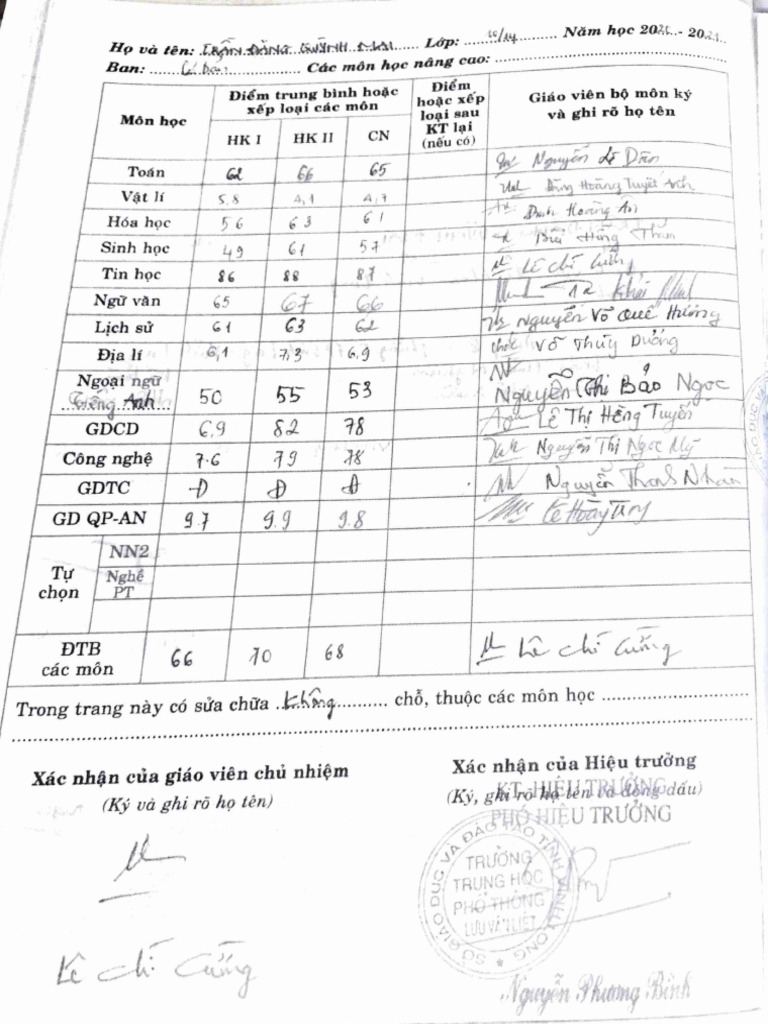 Họ và tên: TRẦN ĐẶNG QUỲNH MAI Lớp: 10/14 Năm học 2021 - 20
Ban: Cơ bản Các môn học nâng cao:
Môn học Điểm trung bình hoặc xếp loại các môn Điểm hoặc xếp loại sau KT lại (nếu có) Giáo viên bộ môn ký và ghi rõ họ tên
HK I HK II CN
Toán 62 66 65 Nguyễn Lê Dân
Vật lí 5,8 4,1 4,7 Đặng Hoàng Tuyết Anh
Hóa học 56 63 61 Đinh Hoàng An
Sinh học 49 61 57 Bùi Hồng Thắm
Tin học 86 88 87 Lê Chí Cường
Ngữ văn 65 67 66 Tạ Khải
Lịch sử 61 63 62 Nguyễn Võ Quế Hương
Địa lí 6,1 7,3 6,9 Võ Thùy Dương
Ngoại ngữ Tiếng Anh 50 55 53 Nguyễn Thị Bảo Ngọc
GDCD 6,9 82 78 Lê Thị Hồng Tuyến
Công nghệ 7.6 79 78 Nguyễn Thị Ngọc Mỹ
GDTC Đ Đ Đ Nguyễn Thanh Nhàn
GD QP-AN 9.7 9.9 9.8 Lê Hoàng
Tự chọn NN2
Nghề PT
ĐTB các môn 66 70 68 Lê Chí Cường
Trong trang này có sửa chữa không chỗ, thuộc các môn học
Xác nhận của giáo viên chủ nhiệm
(Ký và ghi rõ họ tên)
Lê Chí Cường
Xác nhận của Hiệu trưởng
(Ký, ghi rõ họ tên và đóng dấu)
KT. HIỆU TRƯỞNG
PHÓ HIỆU TRƯỞNG
SỞ GIÁO DỤC VÀ ĐÀO TẠO TỈNH VĨNH LONG
TRƯỜNG
TRUNG HỌC
PHỔ THÔNG
LƯU VĂN LIỆT
Nguyễn Phương Bình